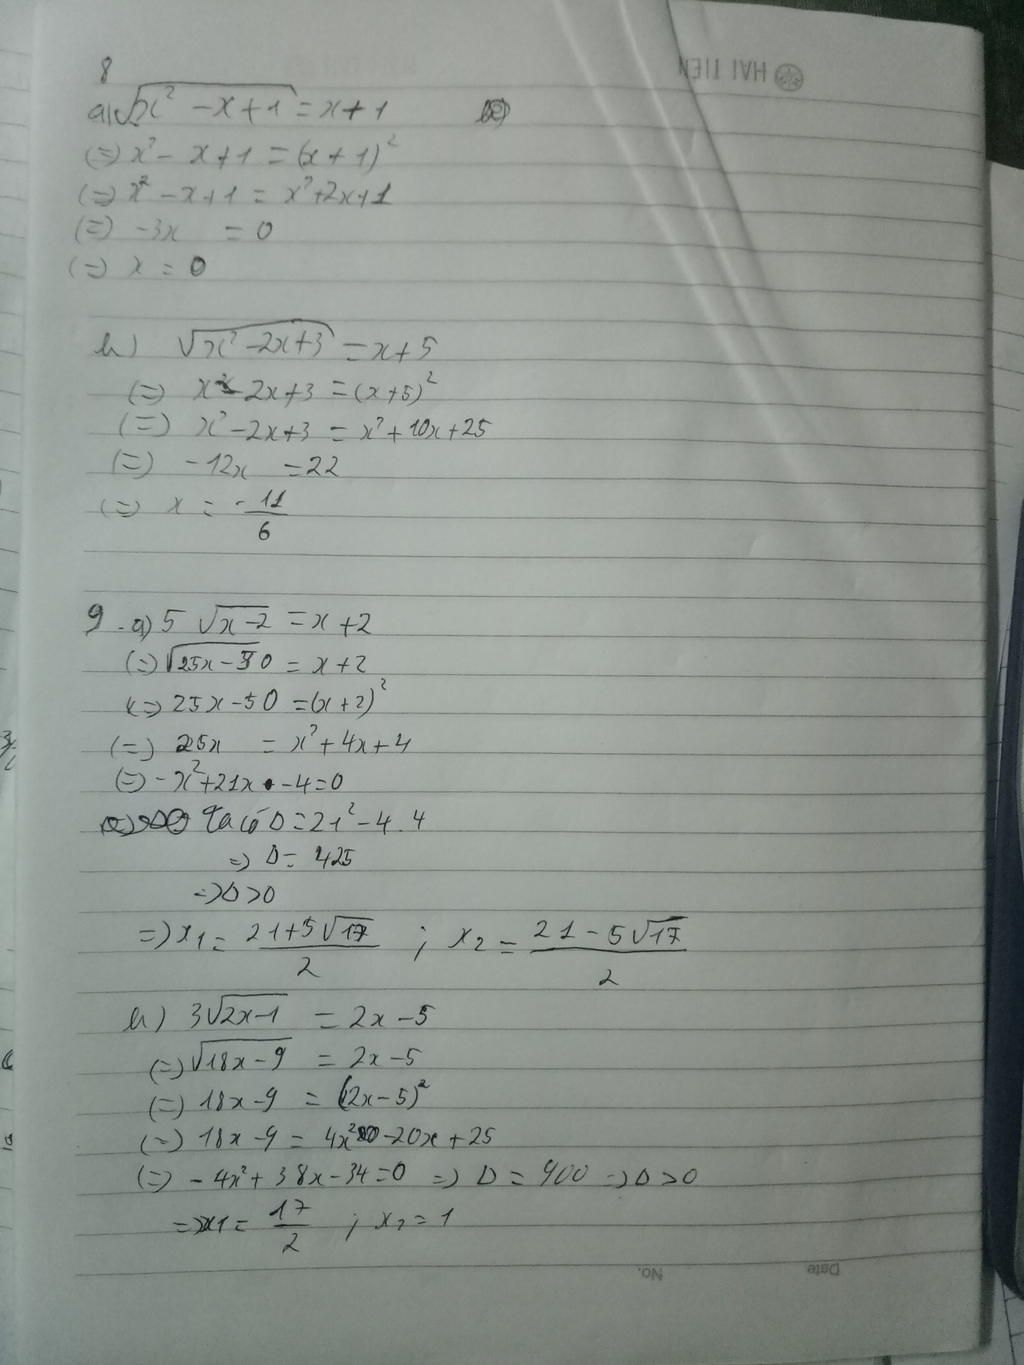 HẢI TIẾN
8
a) √(x² - x + 1) = x + 1
(=) x² - x + 1 = (x + 1)²
(=) x² - x + 1 = x² + 2x + 1
(=) -3x = 0
(=) x = 0
b) √(x² - 2x + 3) = x + 5
(=) x² - 2x + 3 = (x + 5)²
(=) x² - 2x + 3 = x² + 10x + 25
(=) -12x = 22
(=) x = -11/6
9. a) 5√(x - 2) = x + 2
(=) √(25x - 50) = x + 2
(=) 25x - 50 = (x + 2)²
(=) 25x = x² + 4x + 4
(=) -x² + 21x - 4 = 0
Ta có Δ = 21² - 4.4
=) Δ = 425
=) Δ > 0
=) x₁ = (21 + 5√17)/2 ; x₂ = (21 - 5√17)/2
b) 3√(2x - 1) = 2x - 5
(=) √(18x - 9) = 2x - 5
(=) 18x - 9 = (2x - 5)²
(=) 18x - 9 = 4x² - 20x + 25
(=) -4x² + 38x - 34 = 0 =) Δ = 900 =) Δ > 0
=) x₁ = 17/2 ; x₂ = 1
No. Date